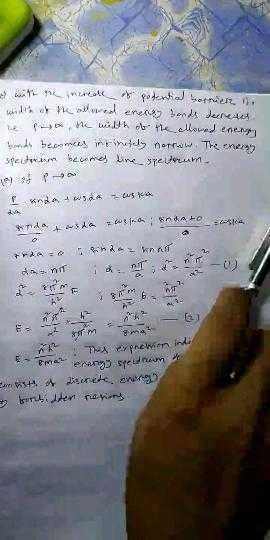 with the increase of potential barrier
width of the allowed energy bands decreases
ie P→∞, the width of the allowed energy
bands becomes infinitely narrow. The energy
spectrum becomes line spectrum.
If P→∞
P/αa sinαa + cosαa = coska
+ cosαa = coska ; = coska
sinαa = 0 ; sinαa = sin nπ
αa = nπ ; α = nπ/a ; α² = n²π²/a² — (1)
α² = 8π²m/h² E ; 8π²m/h² E = n²π²/a²
E = n²π²/a² · h²/8π²m = n²h²/8ma² — (2)
E = n²h²/8ma² ; This expression
energy spectrum
consists of discrete energy
forbidden regions